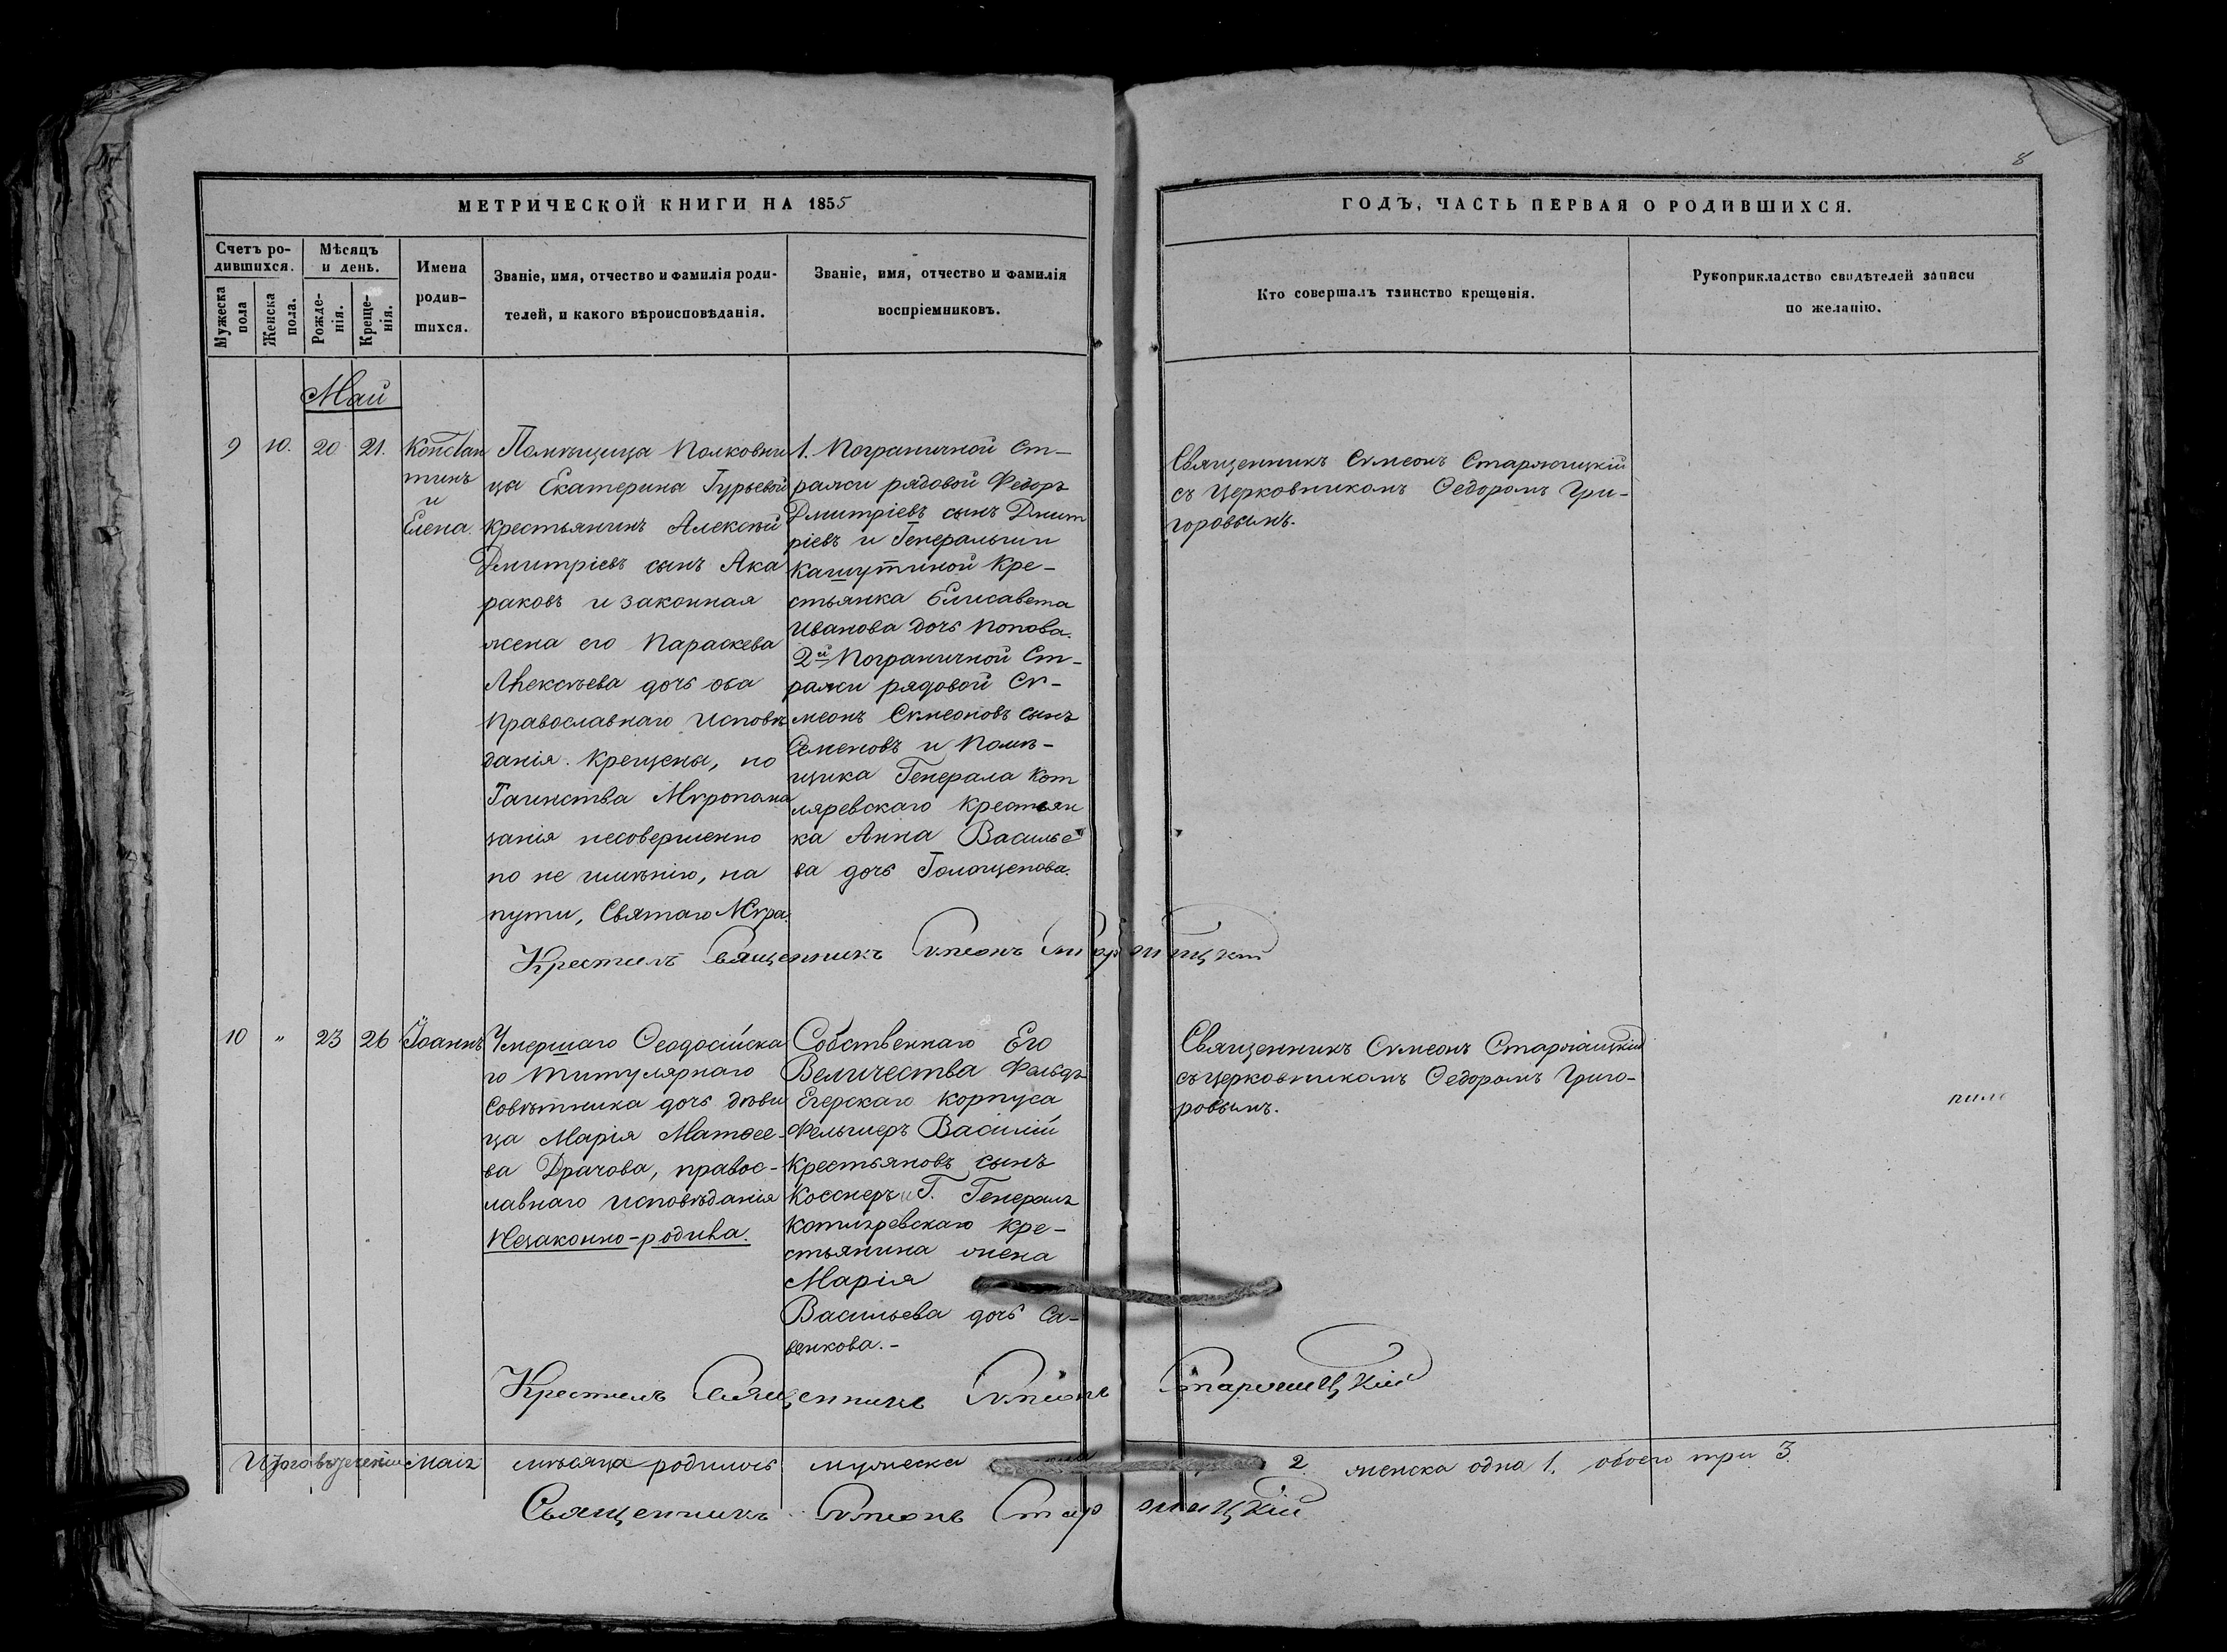 8
МЕТРИЧЕСКОЙ КНИГИ НА 1855
ГОДЪ, ЧАСТЬ ПЕРВАЯ О РОДИВШИХСЯ.
Счетъ ро-
дившихся.
Мужеска
пола
Женска
пола.
Мѣсяцъ
и день.
Рожде-
нія.
Креще-
нія.
Имена
родив-
шихся.
Званіе, имя, отчество и фамилія роди-
телей, и какого вѣроисповѣданія.
Званіе, имя, отчество и фамилія
воспріемниковъ.
Кто совершалъ таинство крещенія.
Рукоприкладство свидѣтелей записи
по желанію.
Май
9 10. 20 21.
Констан
тинъ
и
Елена.
Помѣщица Полковни
ца Екатерина Гурьевой
крестьянинъ Алексѣй
Дмитріевъ сынъ Ака
раковъ и законная
жена его Параскева
Алексѣева дочь оба
Православнаго Исповѣ
данія. Крещены, но
Таинства Мѵропома
занія несовершенно
по не имѣнію, на
пути, Святаго Мѵра.
1. Пограничной Ст-
ражи рядовой Федоръ
Дмитріевъ сынъ Дмит
ріевъ и Генеральши
Кашутиной Кре-
стьянка Елисавета
Иванова дочь Попова.
2й Пограничной Ст-
ражи рядовой Сѵ-
меонъ Сѵмеоновъ сынъ
Семеновъ и Помѣ-
щика Генерала Кот
ляревскаго Крестьян
ка Анна Василье
ва дочь Голощепова.
Священникъ Сѵмеонъ Старлицкій
съ церковникомъ Ѳедоромъ Гри-
горовымъ.
Крестилъ Священникъ Сѵмеонъ
10 " 23 26
Іоаннъ
Умершаго Ѳеодосійска
го Титулярнаго
Совѣтника дочь дѣви
ца Марія Матѳее-
ва Драчова, правос-
лавнаго исповѣданія
Незаконно-родива.
Собственнаго Его
Величества Фельдъ
Егерскаго Корпуса
Фельшеръ Василій
Крестьяновъ сынъ
Косснеръ и Г. Генерала
Котлярѣвскаго Кре-
стьянина жена
Марія
Васильева дочь Са-
венкова.-
Священникъ Сѵмеонъ
съ церковникомъ Ѳедоромъ Григо-
ровымъ.
Крестилъ Священникъ Сѵмеонъ
Итого въ теченіи Маія мѣсяца родилось мужеска 2. женска одна 1. обоего три 3.
Священникъ Сѵмеонъ